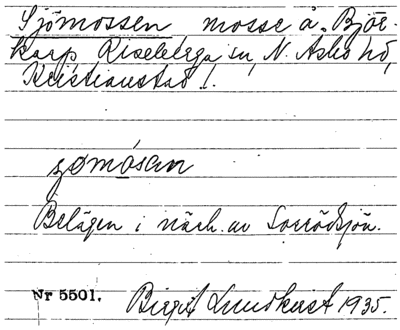 Sjömossen, mosse å Björ-
karp Riseberga sn, N. Åsbo hd,
Kristianstad l.
sjømòsan
Belägen i närh. av Sorrödssjön.
Nr 5501. Birgit Lundkvist 1935.